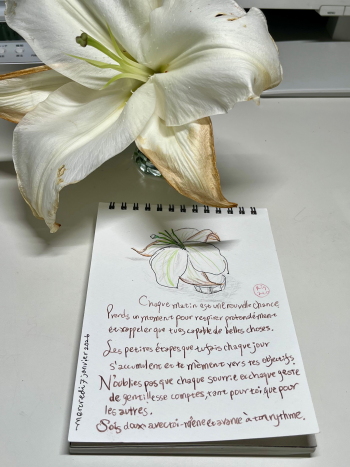 Chaque matin est une nouvelle chance
Prends un moment pour respirer profondément
et rappeler que tu es capable de belles choses.
Les petites étapes que tu fais chaque jour
s'accumulent et te mènent vers tes objectifs.
N'oublies pas que chaque sourire et chaque geste
de gentillesse comptes, tant pour toi que pour
les autres.
Sois doux avec toi-même et avance à ton rythme.
~mercredi 7 janvier 2026